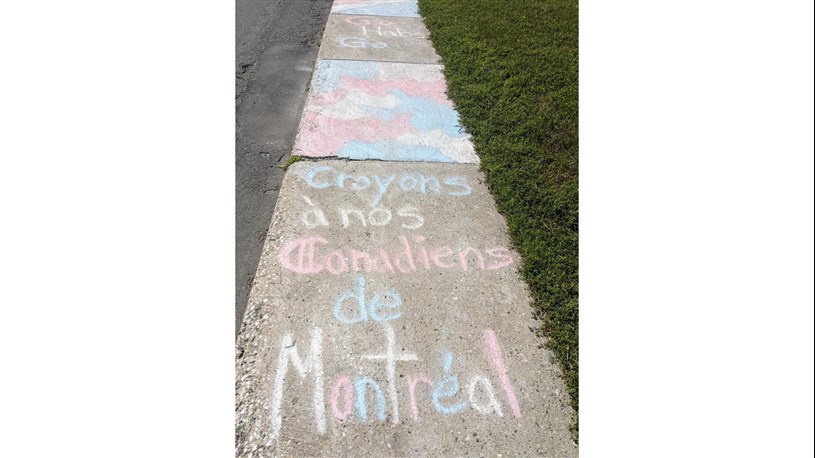 Go
Habs
Go
Croyons
à nos
Canadiens
de
Montréal